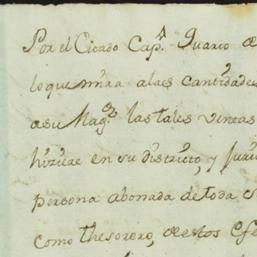 Por el Citado Cap.n Juarco de
lo que mira alas cantidades
a su Mag.d las tales ventas
hiziere en su districto, y
persona abonada de toda s
como thesorero, de estos efe